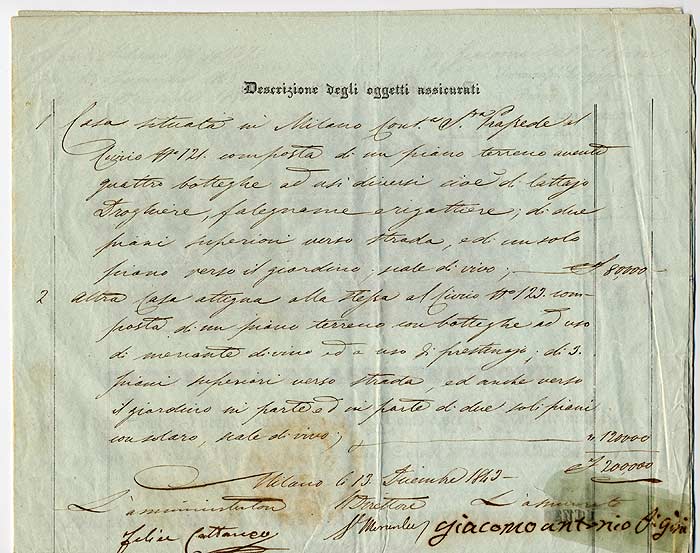 Descrizione degli oggetti assicurati
1 Casa situata in Milano Cont.a S.ta Prapede al
Civico N° 121. composta di un piano terreno avente
quattro botteghe ad usi diversi cioè di lattajo
Droghiere, falegname e rigattiere; di due
piani superiori verso strada, ed un solo
piano verso il giardino; scale di vivo; 80,000
2 Altra Casa attigua alla stessa al Civico N° 123. com-
posta di un piano terreno con botteghe ad uso
di mercante di vino ed a uso di prestinajo, di 3.
piani superiori verso strada ed anche verso
il giardino in parte ed in parte di due soli piani
con solaro, scale di vivo; " 120000
200000
Milano li 13. Dicembre 1843
L'amministratore Il Direttore L'assicurato
Felice Cattaneo giacomo antonio